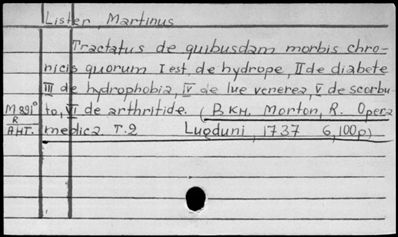 Lister, Martinus
Tractatus de quibusdam morbis chro-
nicis quorum I est, de hydrope, II de diabete
III de hydrophobia, IV de lue venerea, V de scorbu-
to, VI de arthritide. (В кн. Morton, R. Opera
medica. T.2 Lugduni, 1737 6,100p)
R
АНТ.